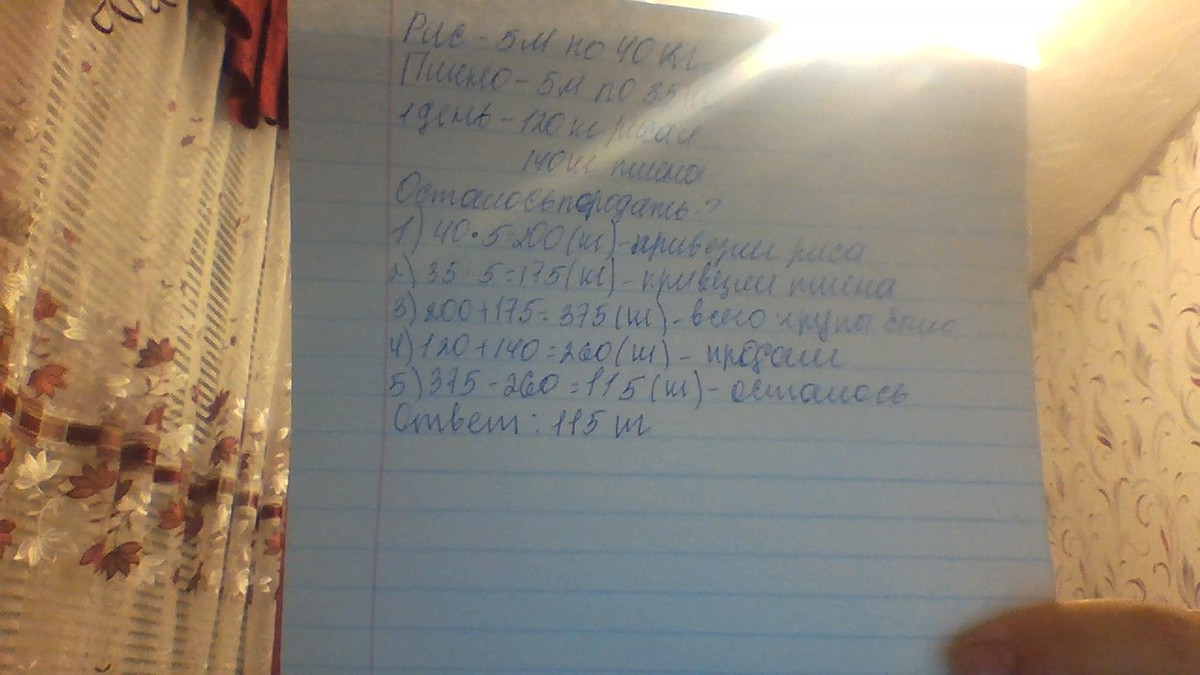 Рис - 5М по 40 кг
Пшено - 5М по 35
1 день - 120 кг риса
140 кг пшена
Осталось продать - ?
1) 40 • 5 = 200 (кг) - привезли риса
2) 35 • 5 = 175 (кг) - привезли пшена
3) 200 + 175 = 375 (кг) - всего крупы было
4) 120 + 140 = 260 (кг) - продали
5) 375 - 260 = 115 (кг) - осталось
Ответ: 115 кг